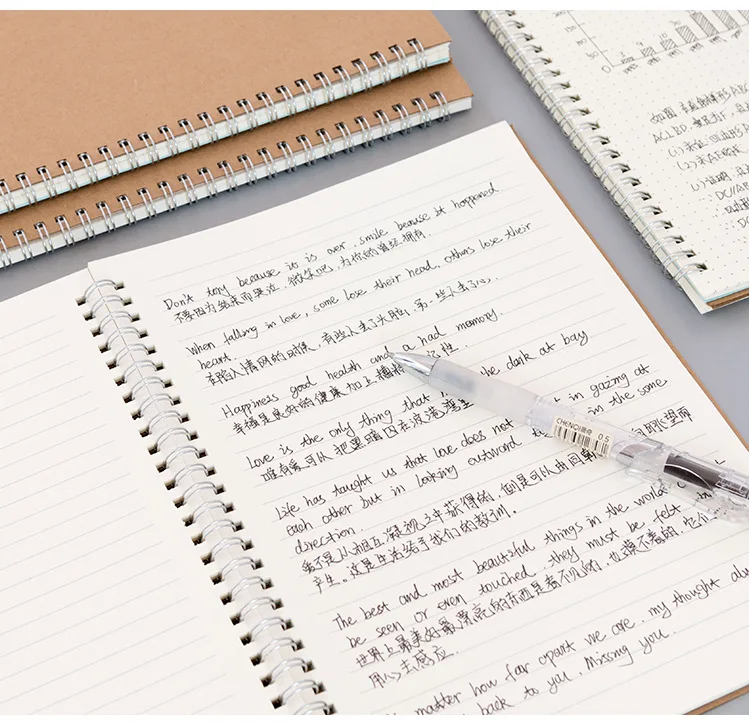 Don't tery because it is over, smile because it happened
不要因为结束而哭泣,微笑吧,为你的曾经拥有.
When falling in love, some lose their head, others lose their
heart.
在陷入情网的时候,有些人丢了头脑,另一些人丢了心.
Happiness good health and a had memory.
幸福是良好的健康加上糟糕 性.
Love is the only thing that the dank at bay
唯有爱可以把黑暗囚在
Life has taught us that love does not in gazing at
each other but in looking outward in the same
direction.
爱不是从相互凝视之中获得的,但是可以由
产生。这是生活给予我们的教训。
The best and most beautiful things in the world
be seen or even touched, they must be felt
世界上最美好最漂亮的东西是看不见的,也摸不着的,它们
用心去感应.
matter how far apart we are, my thought
back to you, Missing you.
CHENGI
0.5
如图
ACED
(1)
(2)
(1) 证明